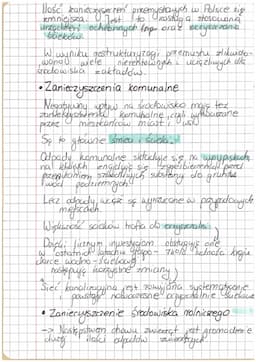 Ilość zanieczyszczeń przemysłowych w Polsce się
zmniejsza. Jest to zasługą stosowania
urządzeń ochronnych (np. oraz oczyszczania
ścieków.
W wyniku restrukturyzacji przemysłu zlikwido-
wano wiele nierentownych i uciążliwych dla
środowiska zakładów.
• Zanieczyszczenia komunalne
Negatywny wpływ na środowisko mają też
zanieczyszczenia komunalne, czyli wytwarzane
przez mieszkańców miast i wsi
Są to głównie śmieci i ścieki.
Odpady komunalne składuje się na wysypiskach,
na których znajdują się zabezpieczenia przed
przenikaniem szkodliwych substancji do gruntu
i wód podziemnych
Lecz odpady, wciąż są wyrzucane w przypadkowych
miejscach.
Większość ścieków trafia do oczyszczalni
Dzięki licznym inwestycjom obsługują one
w ostatnich latach 70% ludności kraju
następują korzystne zmiany
Sieć kanalizacyjna jest rozwijana systematycznie
i powstają nowoczesne oczyszczalnie ścieków
• Zanieczyszczenie środowiska rolniczego
→ Następstwem chowu zwierząt jest gromadzenie
dużej ilości odpadów zwierzęcych